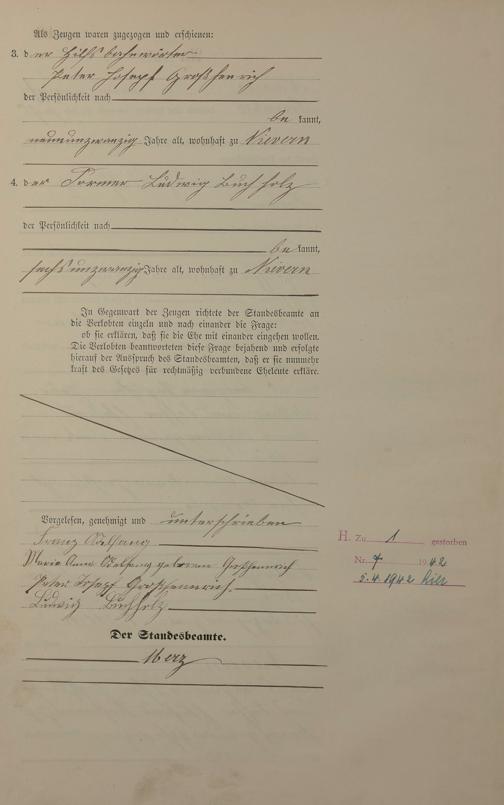 Als Zeugen waren zugezogen und erschienen:
3. der Hilfsbahnwärter
Peter Josef Großhenrich
der Persönlichkeit nach
be kannt,
neunundzwanzig Jahre alt, wohnhaft zu Nievern
4. der Former Ludwig Buchholz
der Persönlichkeit nach
be kannt,
sechsundzwanzig Jahre alt, wohnhaft zu Nievern
In Gegenwart der Zeugen richtete der Standesbeamte an
die Verlobten einzeln und nach einander die Frage:
ob sie erklären, daß sie die Ehe mit einander eingehen wollen.
Die Verlobten beantworteten diese Frage bejahend und erfolgte
hierauf der Ausspruch des Standesbeamten, daß er sie nunmehr
kraft des Gesetzes für rechtmäßig verbundene Eheleute erkläre.
Vorgelesen, genehmigt und unterschrieben
Franz
Maria Anna geborene Großhenrich
Peter Josef Großhenrich
Ludwig Buchholz
Der Standesbeamte.
Merz
H. Zu 1 gestorben
Nr. 7 1942
5.4.1942